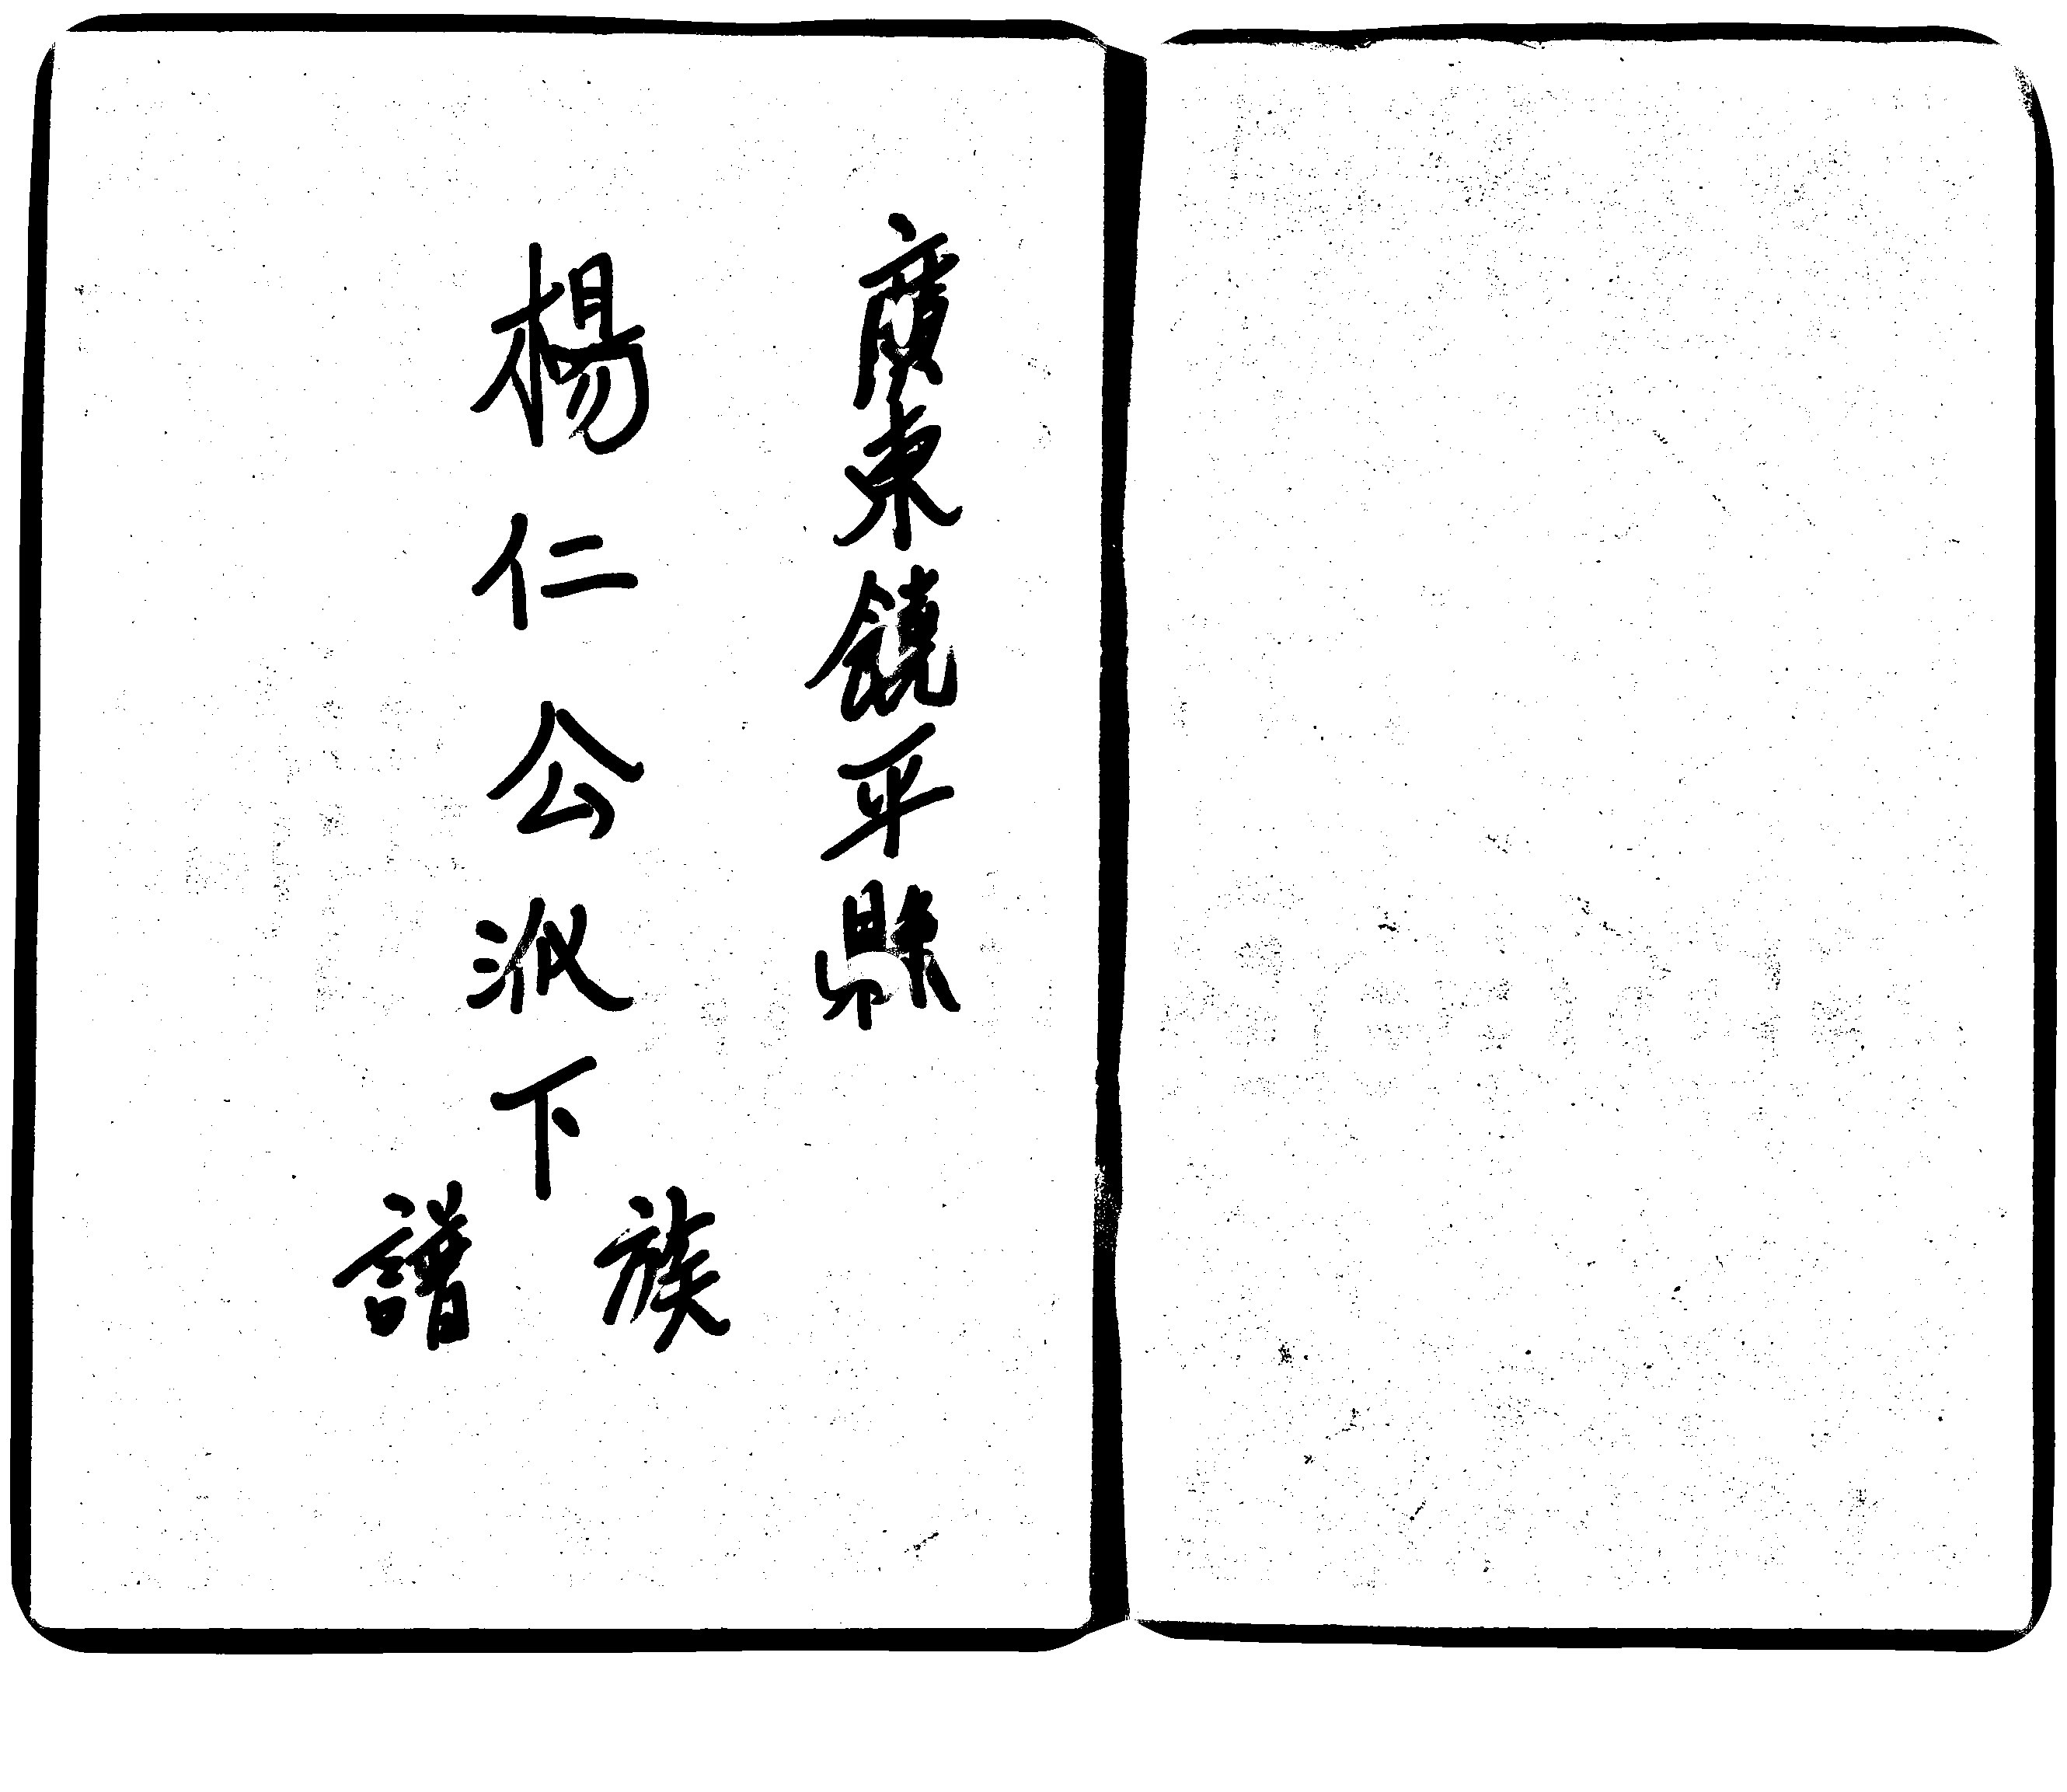 廣東饒平縣
楊仁公派下
族譜